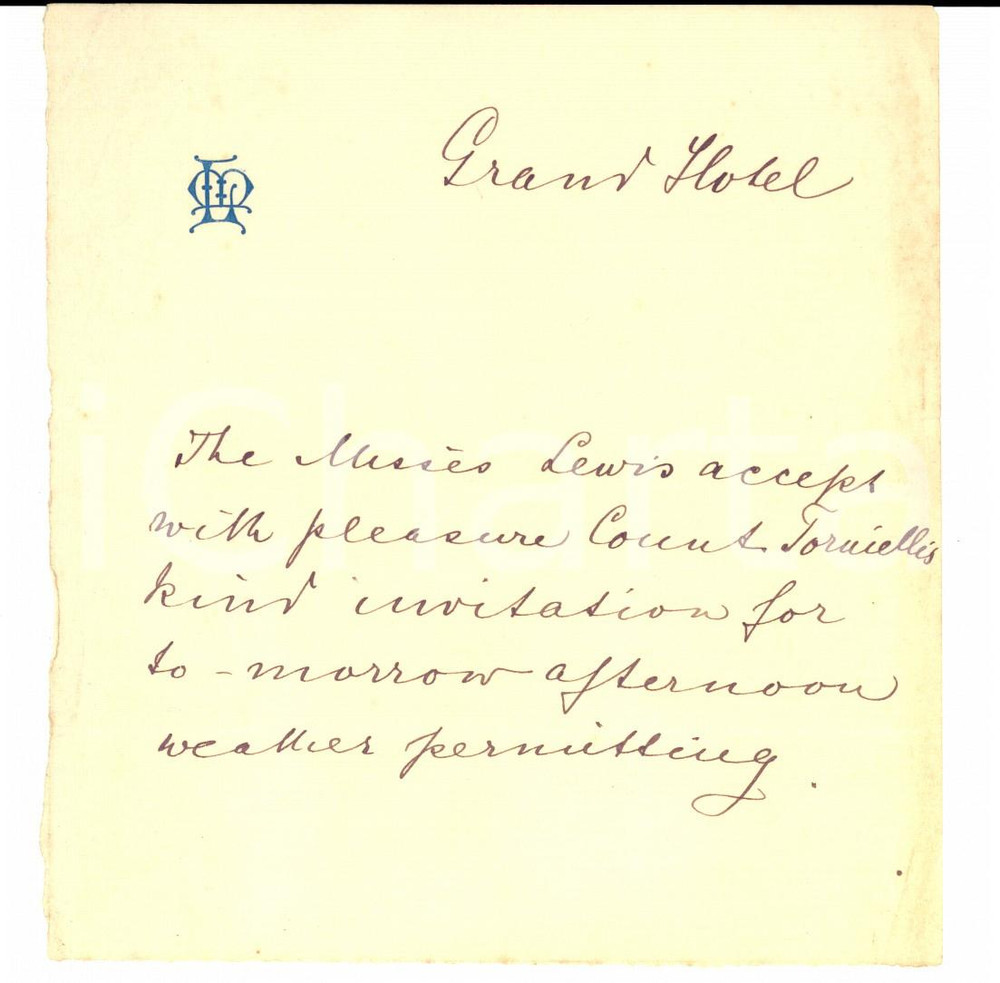 Grand Hotel
The Misses Lewis accept
with pleasure Count Torniellis
kind invitation for
to-morrow afternoon
weather permitting.
iCharta